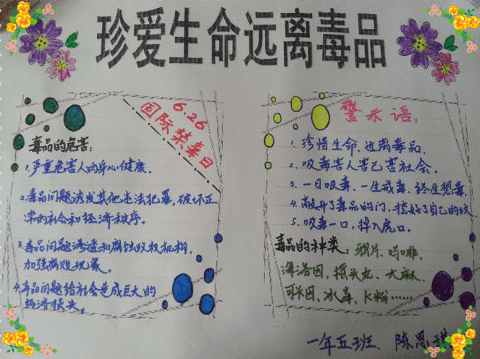 珍爱生命远离毒品
6.26
国际禁毒日
毒品的危害:
1.严重危害人的身心健康。
2.毒品问题诱发其他违法犯罪,破坏正
常的社会和经济秩序。
3.毒品问题渗透和腐蚀政权机构,
加强腐败现象。
4.毒品问题给社会造成巨大的
经济损失。
警示语:
1.珍惜生命,远离毒品。
2.吸毒害人害己害社会。
3.一日吸毒,一生戒毒,终生想毒。
4.敲开了毒品的门,挖好了自己的坟
5.吸毒一口,掉入虎口。
毒品的种类:鸦片、吗啡、
海洛因、摇头丸、大麻、
可卡因、冰毒、K粉……
一年五班、陈思